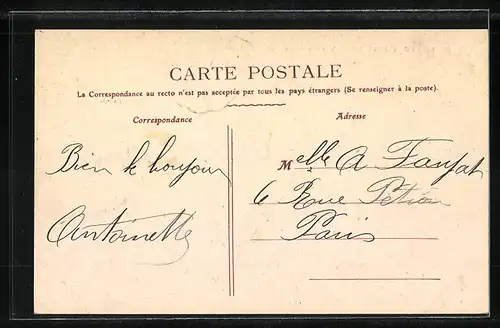 CARTE POSTALE
La Correspondance au recto n'est pas acceptée par tous les pays étrangers (Se renseigner à la poste).
Correspondance
Adresse
Bien le bonjour
Antoinette
Melle A
6 Rue Pétion
Paris